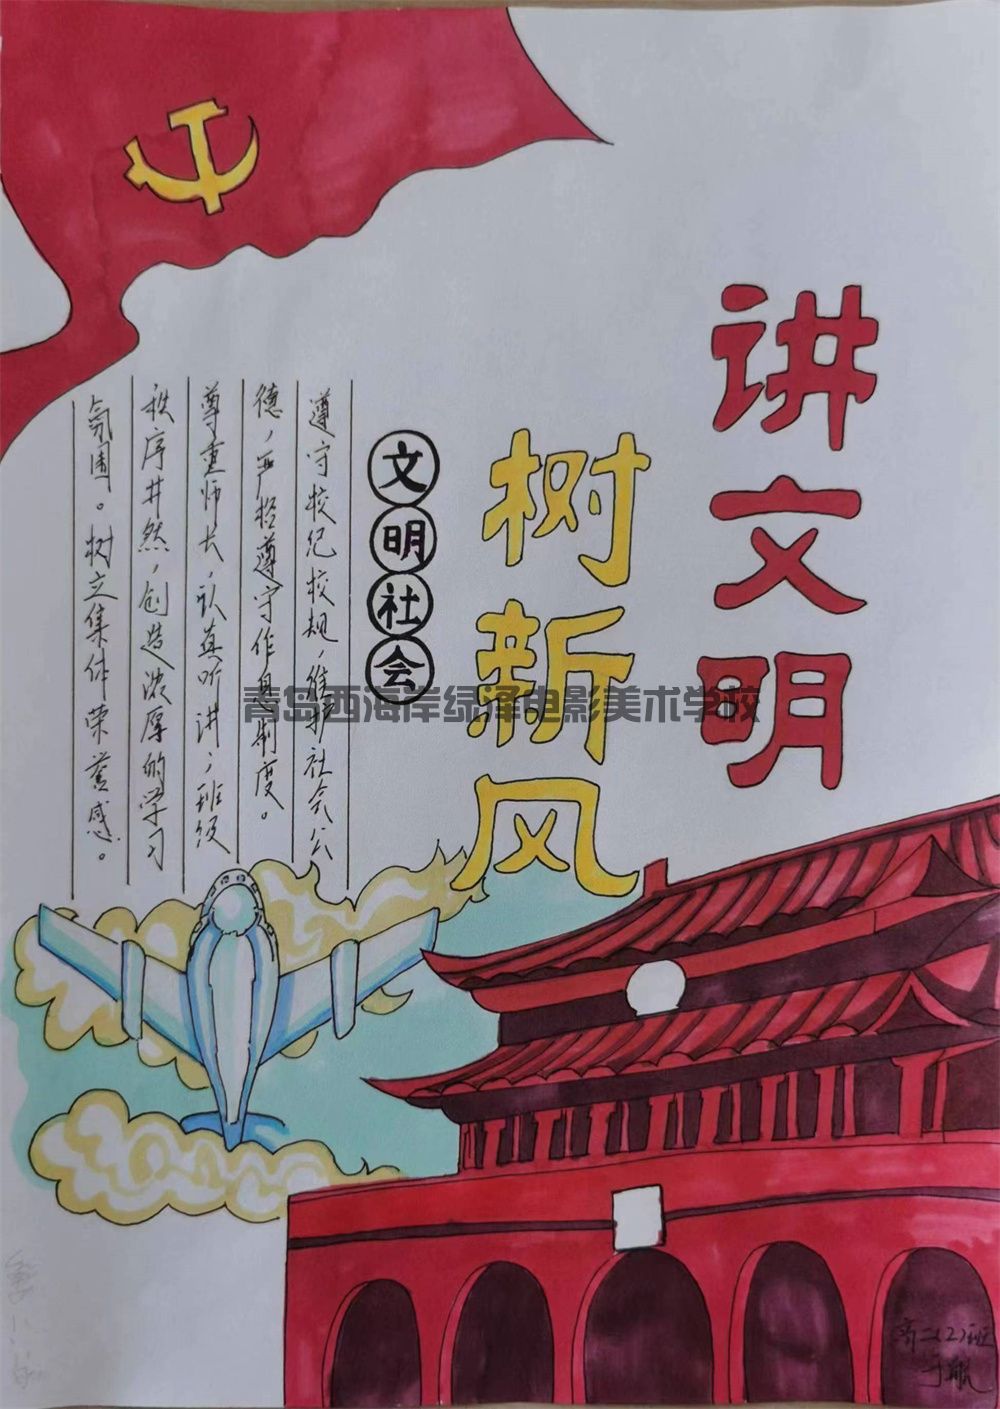 讲文明
树新风
文明社会
遵守校纪校规，维护社会公
德，严格遵守作息制度。
尊重师长，认真听讲，班级
秩序井然，创造浓厚的学习
氛围。树立集体荣誉感。
青岛西海岸绿泽电影美术学校
高二(2)班